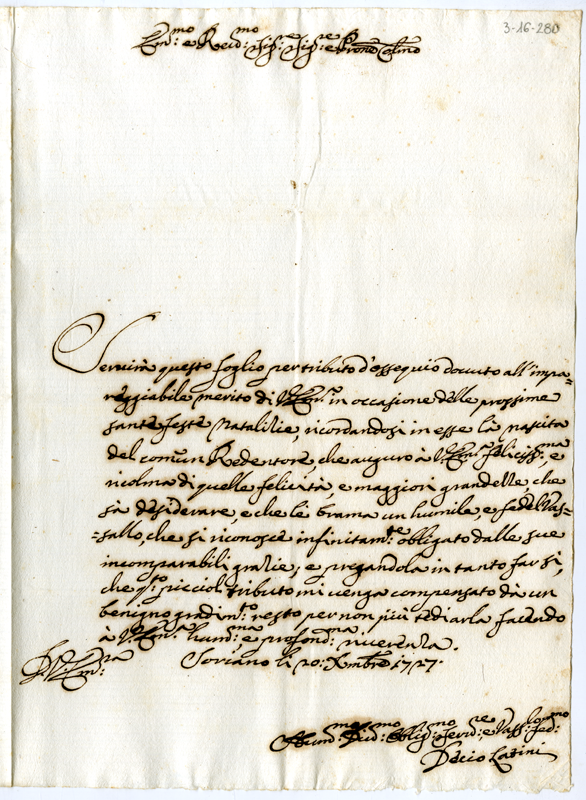 3-16-280
Em:mo e Reid:mo Sig:re Sig:re e Prone Colmo
Seruirà questo foglio per tributo d'ossequio douuto all'impa=
reggiabile merito di V. Em:a in occasione delle prossime
sante feste Natalizie, ricordandosi in esse la nascita
del comun Redentore, che auguro à V. Em:a feliciss:ma, e
ricolma di quelle felicità, e maggiori grandezze, che
sà desiderare, e che le brama un humile e fedel Vas=
=sallo, che si riconosce infinitam:te obligato dalle sue
incomparabili grazie; e pregandola in tanto far sì,
che q:to piccioli tributo mi uenga compensato da un
benigno gradim:to resto per non più tediarla facendo
à V. Em:a hum:ma e profond:ma riuerenza.
D. V. Em:za Soriano li 20: Xmbre 1727.
Hum:mo Diu:mo Oblig:mo Serui:re e Vass:lo fed:mo
Decio Latini